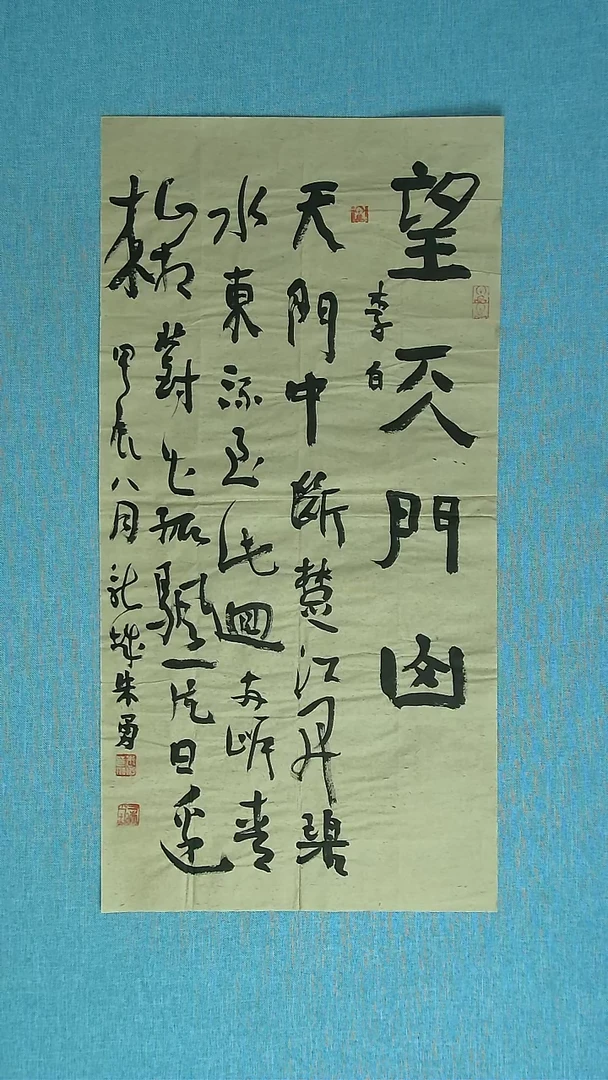 望天門山
李白
天門中斷楚江開碧
水東流至此迴兩岸青
山相對出孤颿一片日邊
來 甲辰八月龍城朱勇